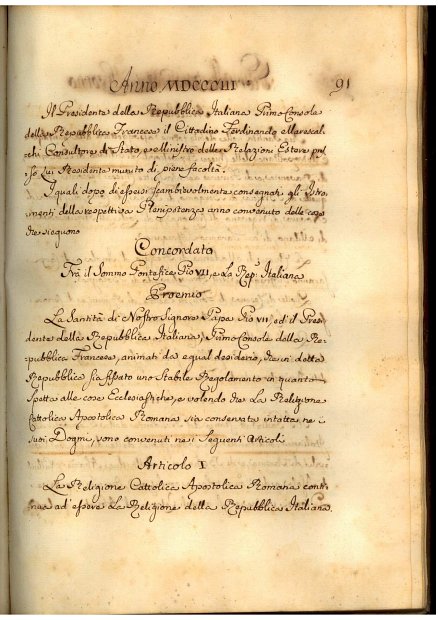 Anno MDCCCIII
91
Il Presidente della Repubblica Italiana Primo Console
della Repubblica Francese il Cittadino Ferdinando Marescal-
chi Consultore di Stato, e Ministro delle Relazioni Estere pres-
so lui Residente munito di piene facoltà.
I quali dopo di essersi scambievolmente consegnati gli Istro-
menti della respettiva Plenipotenza anno convenuto delle cose
che sieguono
Concordato
Trà il Sommo Pontefice Pio VII, e La Rep.ca Italiana
Proemio
La Santità di Nostro Signore Papa Pio VII, ed il Presi-
dente della Repubblica Italiana, Primo Console della Re-
pubblica Francese, animati da egual desiderio, che in detta
Repubblica sia fissato uno Stabile Regolamento in quanto
spetta alle cose Ecclesiastiche, e volendo che La Religione
Cattolica Apostolica Romana sia conservata intatta ne i
suoi Dogmi, sono convenuti ne i Seguenti Articoli
Articolo I
La Religione Cattolica Apostolica Romana conti-
nua ad essere La Religione della Repubblica Italiana.